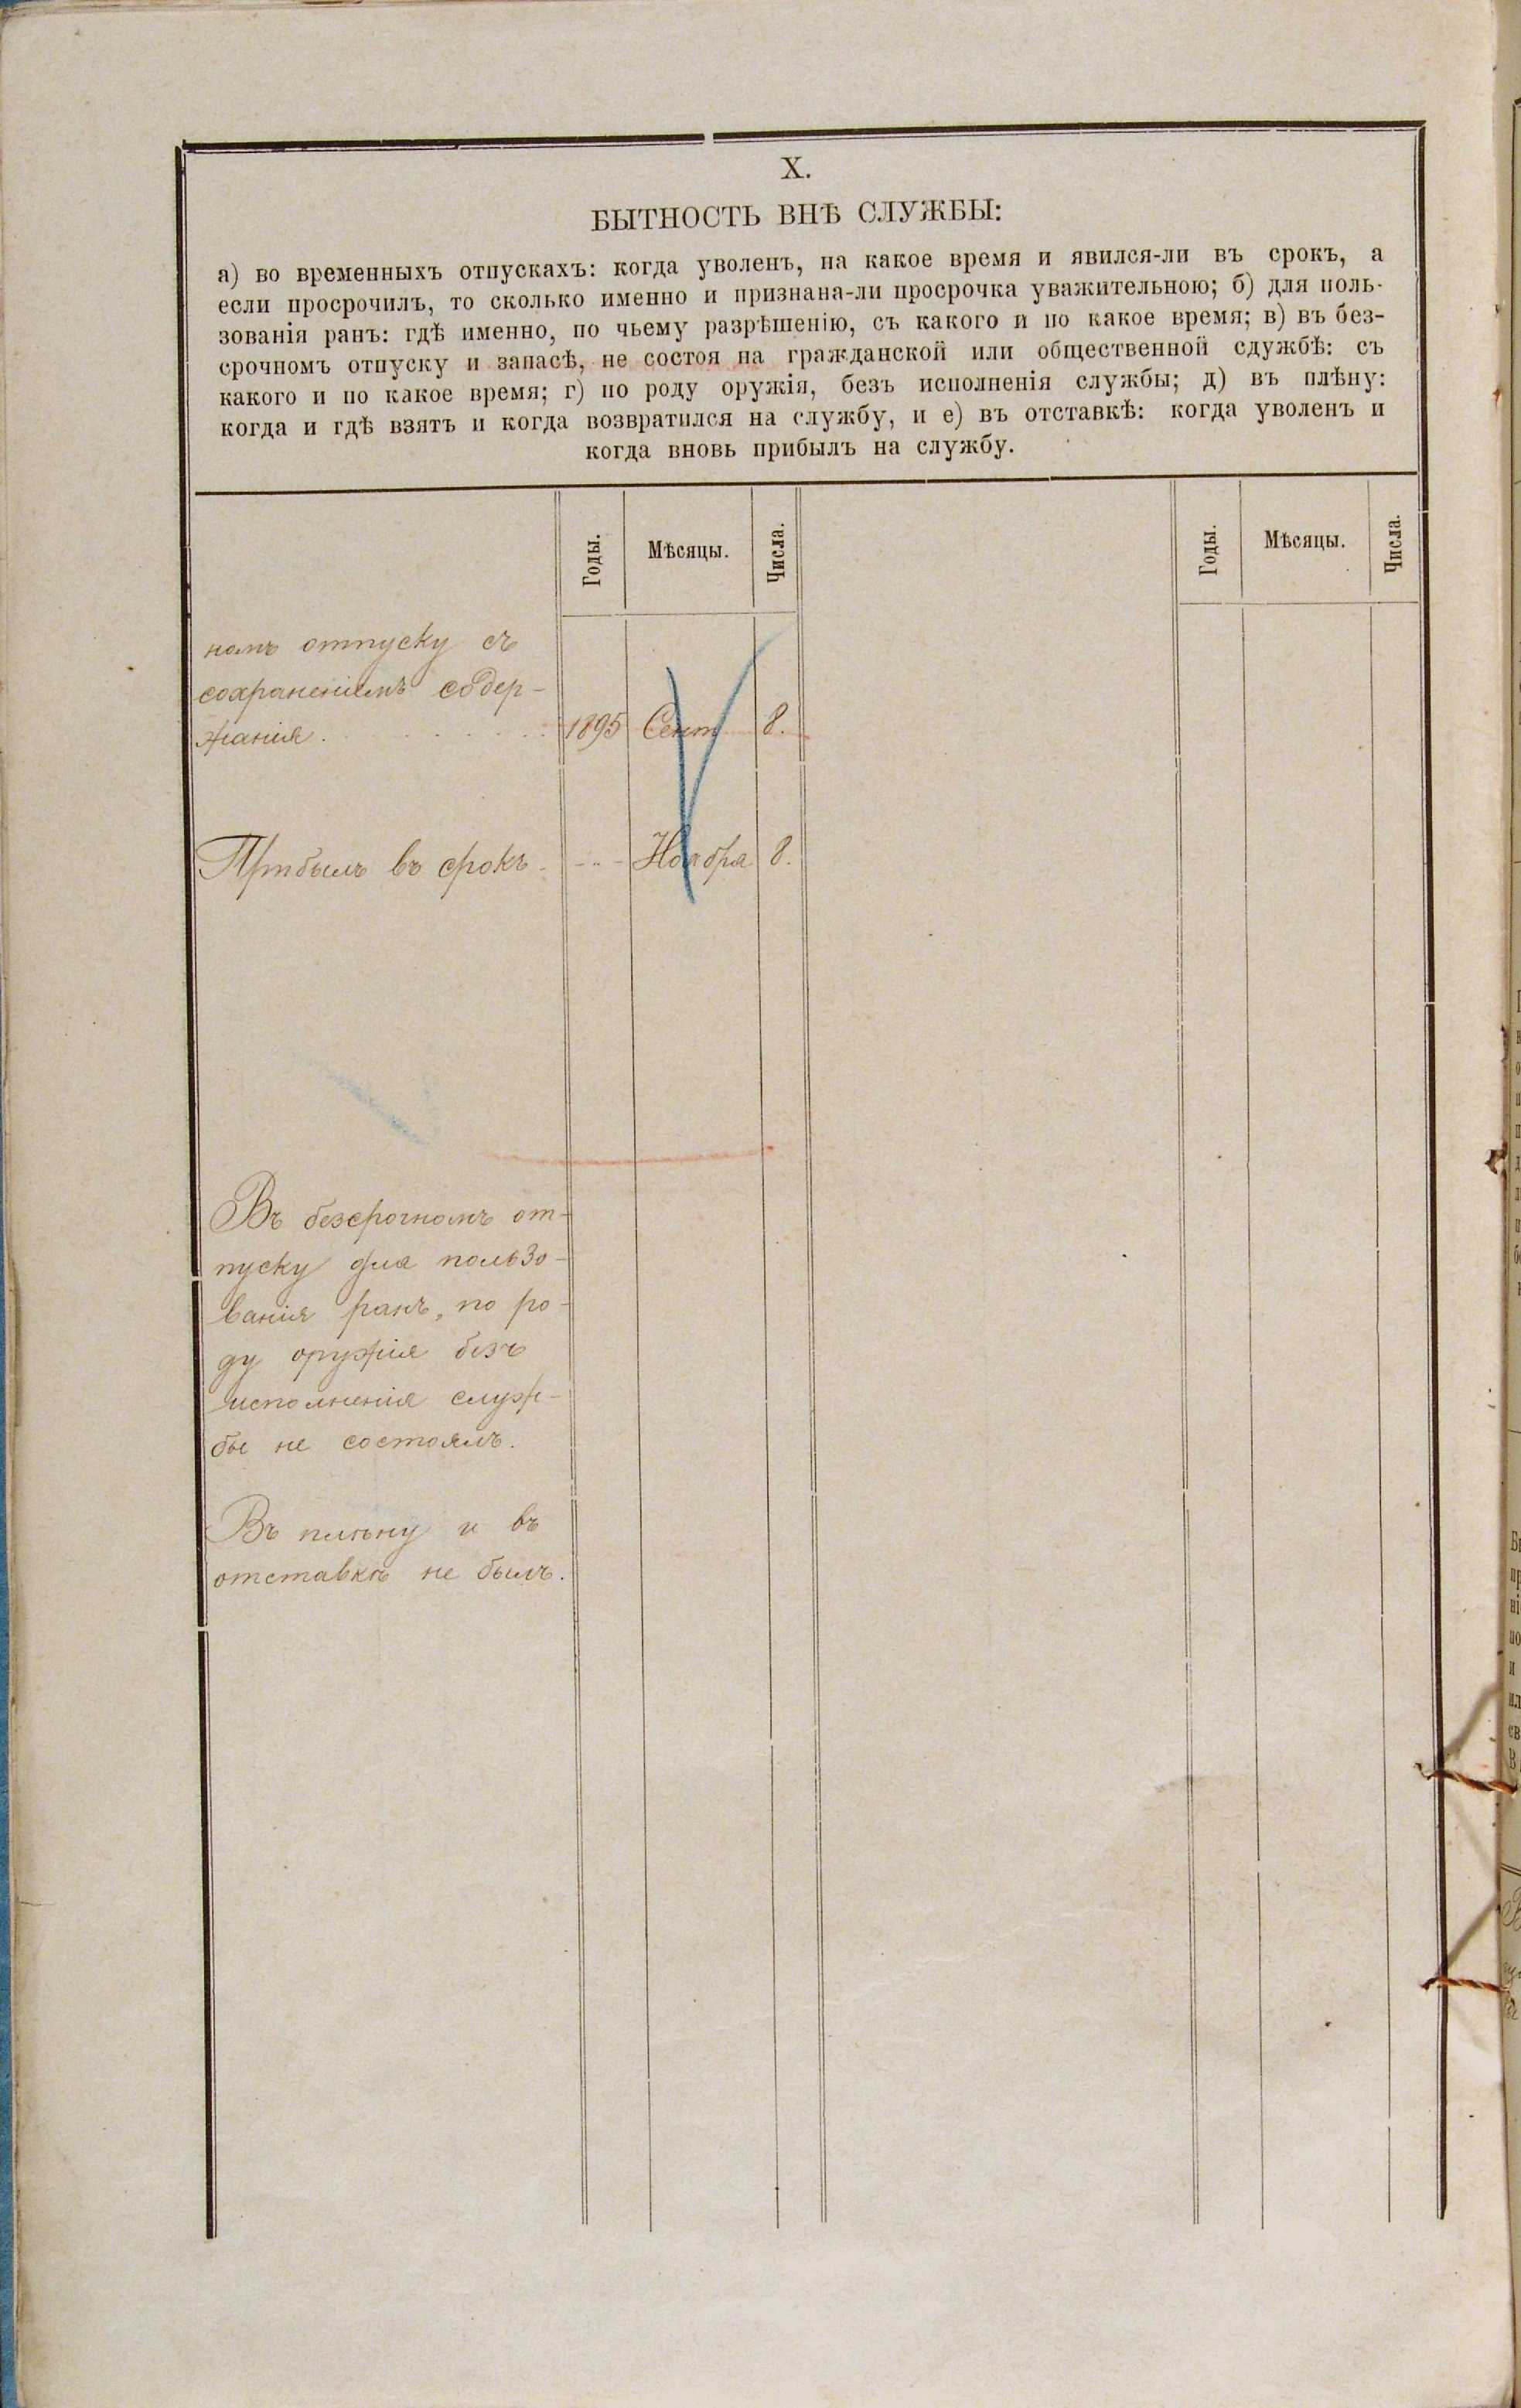 X.
БЫТНОСТЬ ВНѢ СЛУЖБЫ:
а) во временныхъ отпускахъ: когда уволенъ, на какое время и явился-ли въ срокъ, а
если просрочилъ, то сколько именно и признана-ли просрочка уважительною; б) для поль-
зованія ранъ: гдѣ именно, по чьему разрѣшенію, съ какого и по какое время; в) въ без-
срочномъ отпуску и запасѣ, не состоя на гражданской или общественной сдужбѣ: съ
какого и по какое время; г) по роду оружія, безъ исполненія службы; д) въ плѣну:
когда и гдѣ взятъ и когда возвратился на службу, и е) въ отставкѣ: когда уволенъ и
когда вновь прибылъ на службу.
Годы. Мѣсяцы. Числа. Годы. Мѣсяцы. Числа.
номъ отпуску съ
сохраненіемъ содер-
жанія. 1895 Сент 8.
Прибылъ въ срокъ - Ноября 8.
Въ безсрочномъ от-
пуску для пользо-
ванія ранъ, по ро-
ду оружія безъ
исполненія служ-
бы не состоялъ.
Въ плѣну и въ
отставкѣ не былъ.